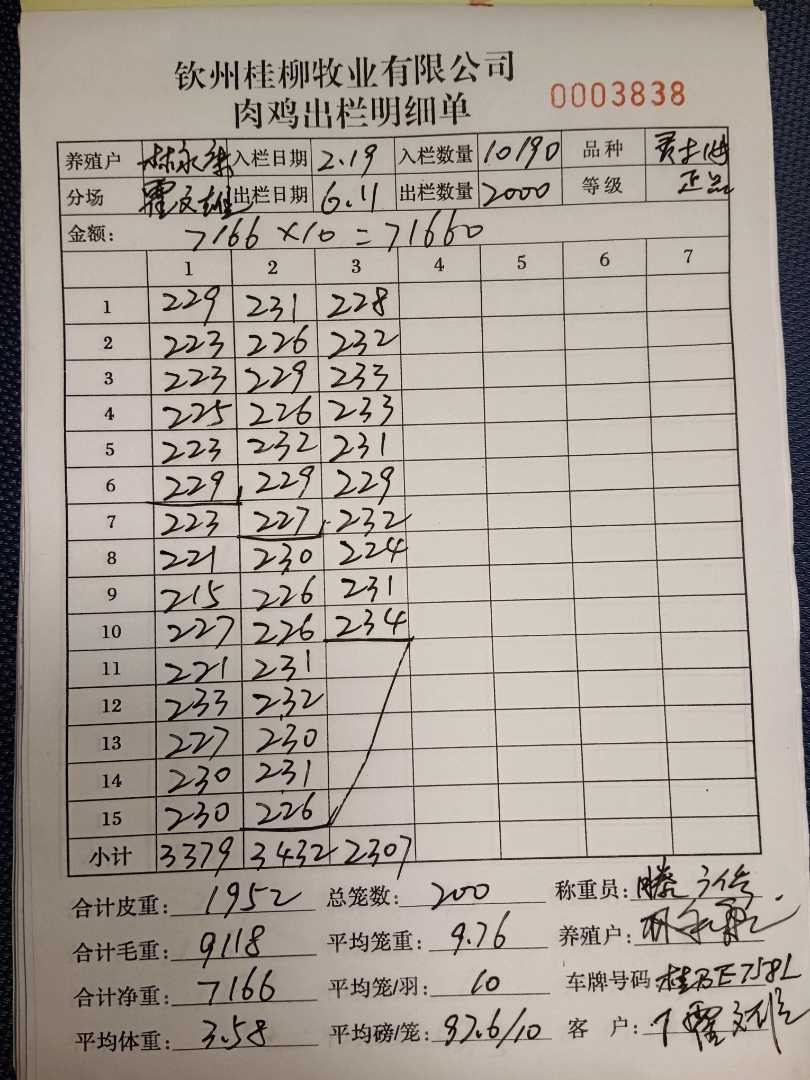 钦州桂柳牧业有限公司
肉鸡出栏明细单 0003838
养殖户 入栏日期 2.19 入栏数量 10190 品种
分场 霍文雄 出栏日期 6.11 出栏数量 2000 等级 正品
金额: 7166×10=71660
1 2 3 4 5 6 7
1 229 231 228
2 223 226 232
3 223 229 233
4 225 226 233
5 223 232 231
6 229 229 229
7 223 227 232
8 221 230 224
9 215 226 231
10 227 226 234
11 221 231
12 233 232
13 227 230
14 230 231
15 230 226
小计 3379 3432 2307
合计皮重: 1952 总笼数: 200 称重员:
合计毛重: 9118 平均笼重: 9.76 养殖户:
合计净重: 7166 平均笼/羽: 10 车牌号码
平均体重: 3.58 平均磅/笼: 37.6/10 客户: 霍文雄